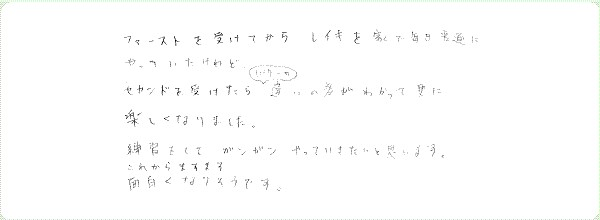 ファーストを受けてから レイキを楽しくて毎日普通に
やっていたけれど、
パワーの
セカンドを受けたら 違いの差がわかって更に
楽しくなりました。
練習をして ガンガン やっていきたいと思います。
これからますます
面白くなりそうです。